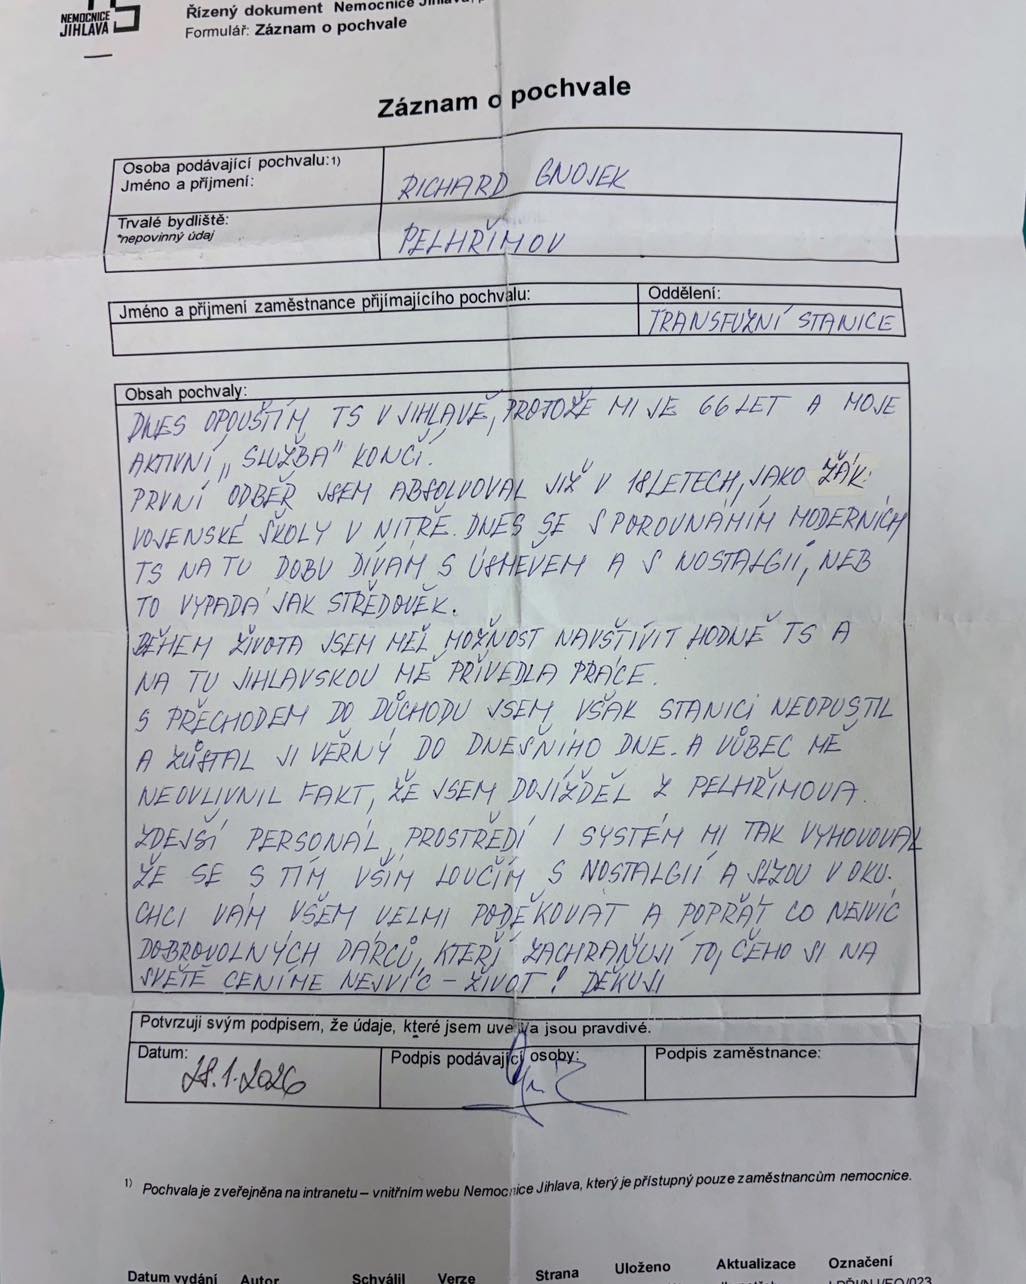 NEMOCNICE
JIHLAVA
Řízený dokument Nemocnice Jihlava,
Formulář: Záznam o pochvale
Záznam o pochvale
Osoba podávající pochvalu:1)
Jméno a příjmení:
RICHARD GNOJEK
Trvalé bydliště:
*nepovinný údaj
PELHŘIMOV
Jméno a příjmení zaměstnance přijímajícího pochvalu:
Oddělení:
TRANSFUZNÍ STANICE
Obsah pochvaly:
DNES OPOUŠTÍM TS V JIHLAVĚ, PROTOŽE MI JE 66 LET A MOJE
AKTIVNÍ „SLUŽBA" KONČÍ.
PRVNÍ ODBĚR JSEM ABSOLVOVAL JIŽ V 18 LETECH, JAKO ŽÁK
VOJENSKÉ ŠKOLY V NITŘE. DNES SE S POROVNÁNÍM MODERNÍCH
TS NA TU DOBU DÍVÁM S ÚSMĚVEM A S NOSTALGIÍ, NEB
TO VYPADÁ JAK STŘEDOVĚK.
BĚHEM ŽIVOTA JSEM MĚL MOŽNOST NAVŠTÍVIT HODNĚ TS A
NA TU JIHLAVSKOU MĚ PŘIVEDLA PRÁCE.
S PŘECHODEM DO DŮCHODU JSEM VŠAK STANICI NEOPUSTIL
A ZŮSTAL JI VĚRNÝ DO DNEŠNÍHO DNE. A VŮBEC MĚ
NEOVLIVNIL FAKT, ŽE JSEM DOJÍŽDĚL Z PELHŘIMOVA.
ZDEJŠÍ PERSONÁL, PROSTŘEDÍ I SYSTÉM MI TAK VYHOVOVAL
ŽE SE S TÍM VŠÍM LOUČÍM S NOSTALGIÍ A SLZOU V OKU.
CHCI VÁM VŠEM VELMI PODĚKOVAT A POPŘÁT CO NEJVÍC
DOBROVOLNÝCH DÁRCŮ, KTEŘÍ ZACHRAŇUJÍ TO, ČEHO SI NA
SVĚTĚ CENÍME NEJVÍC – ŽIVOT! DĚKUJI
Potvrzuji svým podpisem, že údaje, které jsem uvedl/a jsou pravdivé.
Datum:
28.1.2026
Podpis podávající osoby:
Podpis zaměstnance:
1) Pochvala je zveřejněna na intranetu – vnitřním webu Nemocnice Jihlava, který je přístupný pouze zaměstnancům nemocnice.
Datum vydání Autor Schválil Verze Strana Uloženo Aktualizace Označení